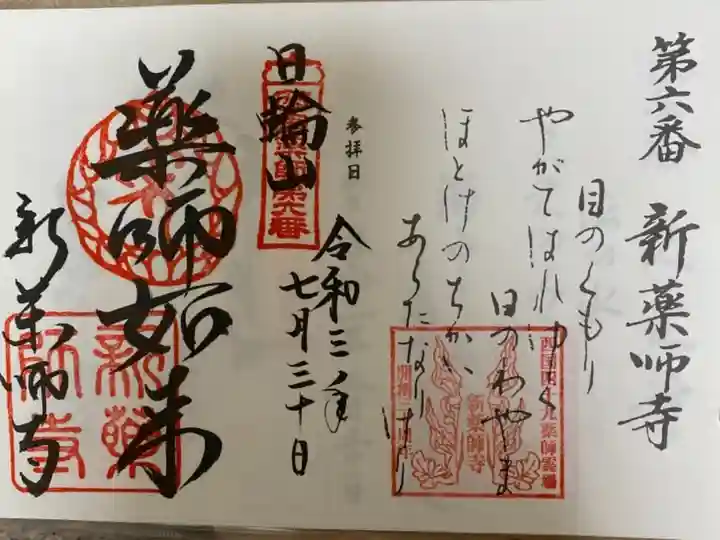 第六番 新薬師寺
目のくもり
やがてはれゆく
日のわやま
ほとけのちかい
あらたなりけり
参拝日
令和三年
七月三十日
日輪山
薬師如来
新薬師寺
西国四十九薬師霊場
新薬師寺
新薬
師寺